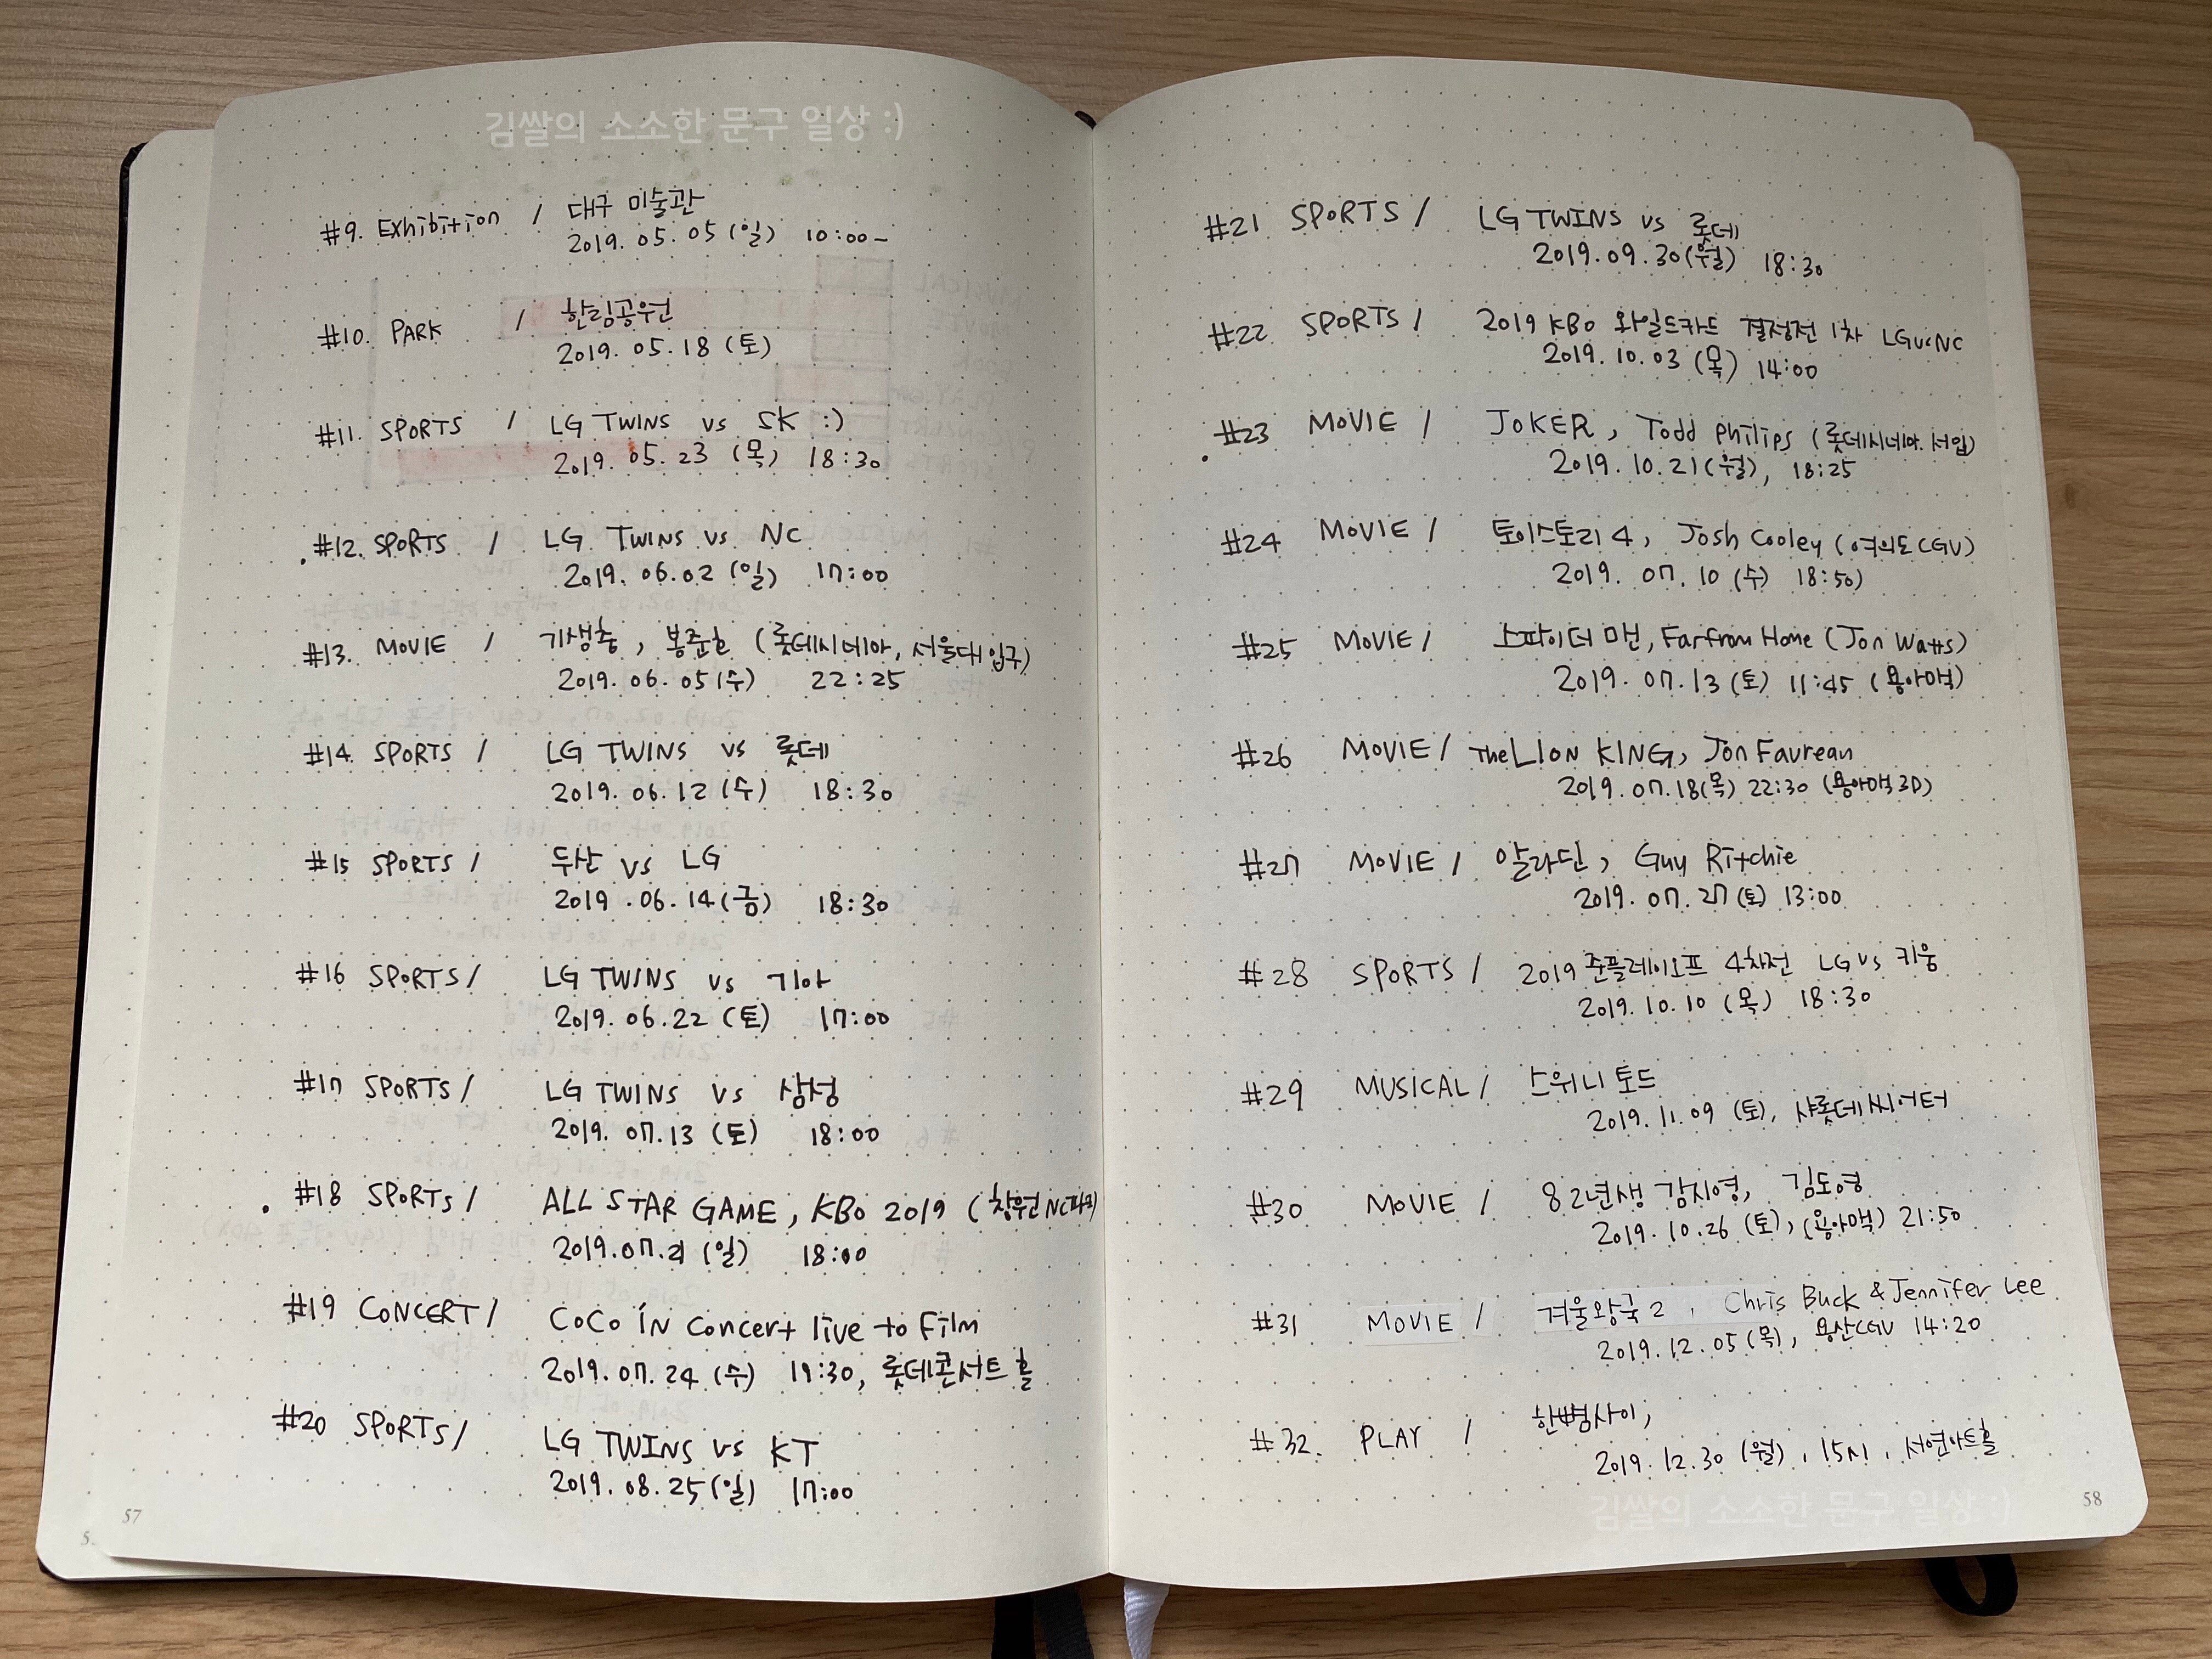 김쌀의 소소한 문구 일상 :)
#9. Exhibition / 대구 미술관
2019. 05. 05 (일) 10:00~
#10. PARK / 한림공원
2019. 05. 18 (토)
#11. SPORTS / LG TWINS vs SK :)
2019. 05. 23 (목) 18:30
#12. SPORTS / LG TWINS vs NC
2019. 06. 02 (일) 17:00
#13. MOVIE / 기생충, 봉준호 (롯데시네마, 서울대입구)
2019. 06. 05 (수) 22:25
#14 SPORTS / LG TWINS vs 롯데
2019. 06. 12 (수) 18:30
#15 SPORTS / 두산 vs LG
2019. 06. 14 (금) 18:30
#16 SPORTS / LG TWINS vs 기아
2019. 06. 22 (토) 17:00
#17 SPORTS / LG TWINS vs 삼성
2019. 07. 13 (토) 18:00
#18 SPORTS / ALL STAR GAME, KBO 2019 (창원NC파크)
2019. 07. 21 (일) 18:00
#19 CONCERT / COCO IN Concert live to Film
2019. 07. 24 (수) 19:30, 롯데콘서트홀
#20 SPORTS / LG TWINS vs KT
2019. 08. 25 (일) 17:00
57
#21 SPORTS / LG TWINS vs 롯데
2019. 09. 30 (월) 18:30
#22 SPORTS / 2019 KBO 와일드카드 결정전 1차 LG vs NC
2019. 10. 03 (목) 14:00
#23 MOVIE / JOKER, Todd Philips (롯데시네마. 서입)
2019. 10. 21 (월), 18:25
#24 MOVIE / 토이스토리 4, Josh Cooley (여의도CGV)
2019. 07. 10 (수) 18:50)
#25 MOVIE / 스파이더맨, Far from Home (Jon Watts)
2019. 07. 13 (토) 11:45 (용아맥)
#26 MOVIE / The LION KING, Jon Favreau
2019. 07. 18 (목) 22:30 (용아맥 3D)
#27 MOVIE / 알라딘, Guy Ritchie
2019. 07. 27 (토) 13:00
#28 SPORTS / 2019 준플레이오프 4차전 LG vs 키움
2019. 10. 10 (목) 18:30
#29 MUSICAL / 스위니 토드
2019. 11. 09 (토), 샤롯데씨어터
#30 MOVIE / 82년생 김지영, 김도영
2019. 10. 26 (토), (용아맥) 21:50
#31 MOVIE / 겨울왕국 2, Chris Buck & Jennifer Lee
2019. 12. 05 (목), 용산CGV 14:20
#32. PLAY / 한뼘사이,
2019. 12. 30 (월), 15시, 서연아트홀
김쌀의 소소한 문구 일상 :)
58